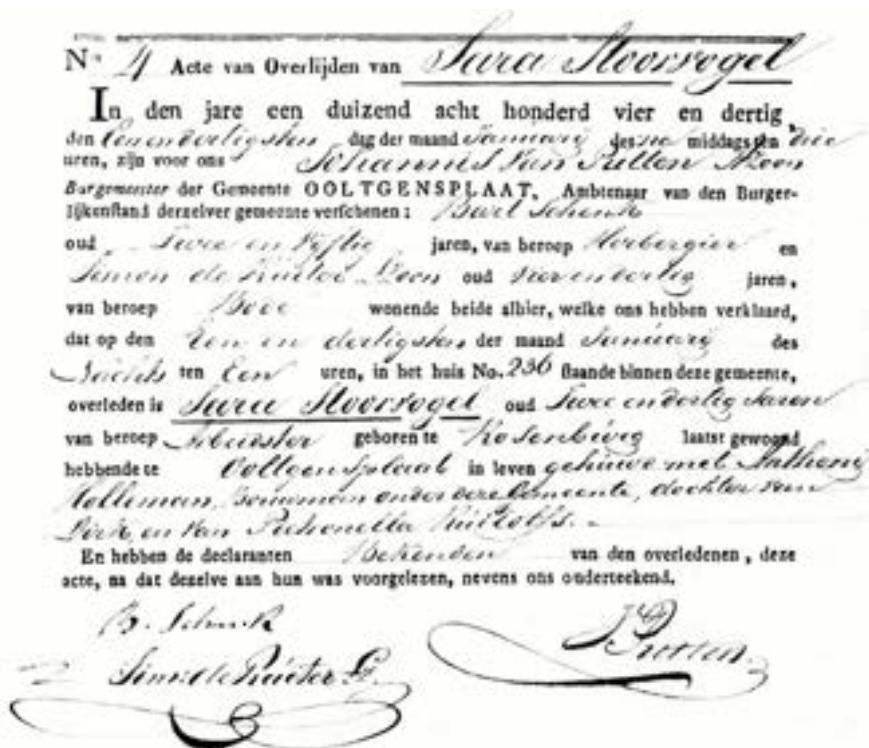 No. 4 Acte van Overlijden van Sara Stoorvogel
In den jare een duizend acht honderd vier en dertig,
den Eenendertigsten dag der maand Januarij des na middags ten drie
uren, zijn voor ons Johannis van Putten Azoon
Burgemeester der Gemeente OOLTGENSPLAAT, Ambtenaar van den Burger-
lijkenstand derzelver gemeente verschenen: Bart Schenk
oud Twee en Vijftig jaren, van beroep Herbergier en
Simon de Ruiter oud vier en dertig jaren,
van beroep Bode wonende beide alhier, welke ons hebben verklaard,
dat op den Een en dertigsten der maand Januarij des
Nachts ten Een uren, in het huis No. 236 staande binnen deze gemeente,
overleden is Sara Stoorvogel oud Twee en dertig Jaren
van beroep Arbeidster geboren te Rosenburg laatst gewoond
hebbende te Ooltgensplaat in leven gehuwd met Anthonij
Holleman, Bouwman onder deze Gemeente, dochter van
Dirk en van Pietronella
En hebben de declaranten Bekenden van den overledenen, deze
acte, na dat dezelve aan hun was voorgelezen, nevens ons onderteekend.
B. Schenk
J v Putten
Sim: de Ruiter